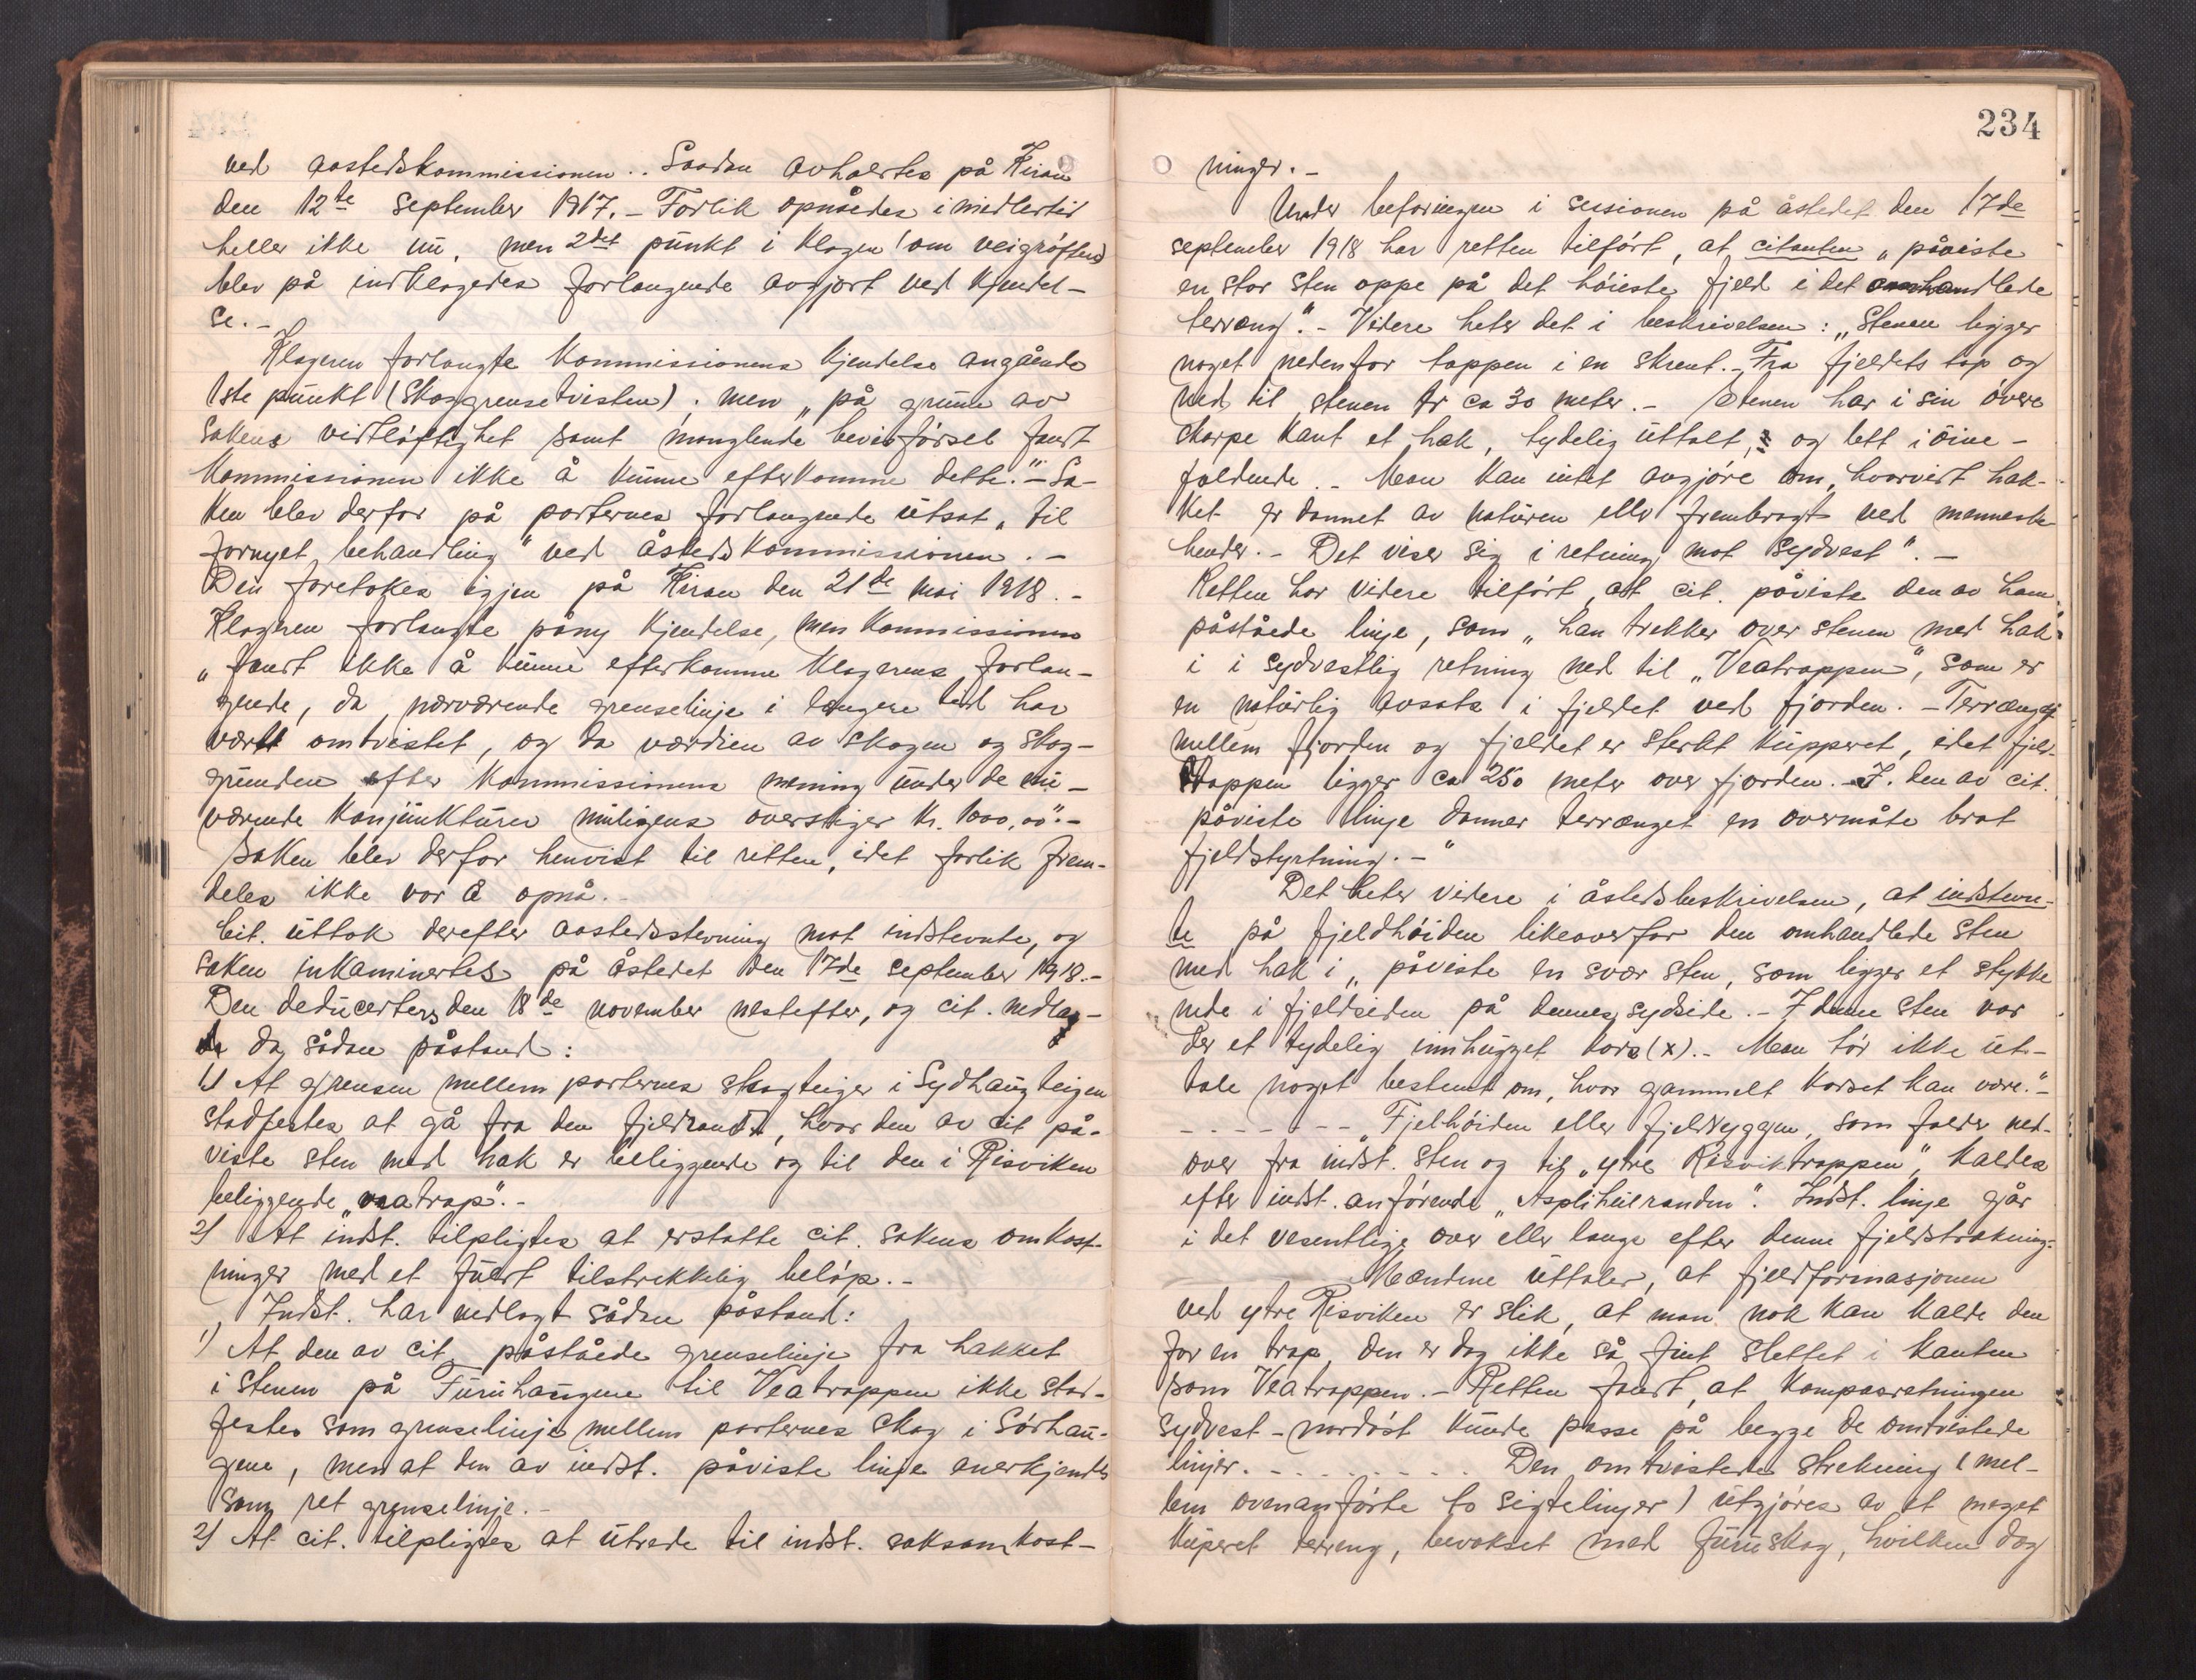 ved aastedskommissionen. . Saadan avholdtes på Kiran
den 12te september 1917. – Forlik opnåedes imidlertid
heller ikke nu, men 2det punkt i klagen (om veigrøften)
blev på indklagedes forlangende avgjort ved kjendel-
se. –
Klageren forlangte kommissionens kjendelse angående
1ste punkt (skoggrensetvisten); men „på grunn av
sakens vidtløftighet samt manglende bevisførsel fandt
kommissionen ikke å kunne efterkomme dette." – Sa-
ken blev derfor på parternes forlangende utsat „til
fornyet behandling" ved åstedskommissionen. –
Den foretokes igjen på Kiran den 21de mai 1918. –
Klageren forlangte påny kjendelse, men kommissionen
„fandt ikke å kunne efterkomme klagerens forlan-
gende, da nærværende grenselinje i lengere tid har
vært omtvistet, og da værdien av skogen og skog-
grunden efter kommissionens mening under de nu-
værende konjunkturer muligens overstiger kr. 1000,00". –
Saken blev derfor henvist til retten, idet forlik frem-
deles ikke var å opnå. –
Cit. uttok derefter aastedsstevning mot indstevnte, og
saken inkaminertes på åstedet den 17de september 1918. –
Den deducertes den 18de november nestefter, og cit. nedla-
de da sådan påstand:
1) At grensen mellem parternes skogteiger i Sydhaugteigen
stadfestes at gå fra den fjeldrand, hvor den av cit på-
viste sten med hak er beliggende og til den i Risviken
beliggende „veatrap". –
2) At indst. tilpligtes at erstatte cit. sakens omkost-
ninger med et fuldt tilstrekkelig beløp. –
Indst. har nedlagt sådan påstand:
1) At den av cit. påståede grenselinje fra hakket
i stenen på Furuhaugene til Veatrappen ikke stad-
festes som grenselinje mellem parternes skog i Sørhau-
gene, men at den av indst. påviste linje anerkjendes
som ret grenselinje. –
2) At cit. tilpligtes at utrede til indst. saksomkost-
234
ninger. –
Under befaringen i sessionen på åstedet den 17de
september 1918 har retten tilført, at citanten „påviste
en stor sten oppe på det høieste fjeld i det omhandlede
terræng". – Videre heter det i beskrivelsen: „Stenen ligger
noget nedenfor toppen i en skrent. – Fra fjeldets top og
ned til stenen er ca 30 meter. – Stenen har i sin øvre
skarpe kant et hak, tydelig uttalt, og lett i øine-
faldende. – Man kan intet avgjøre om, hvorvidt hak-
ket er dannet av naturen eller frembragt ved menneske
hender. – Det viser sig i retning mot sydvest". –
Retten har videre tilført, at cit. påviste den av ham
påståede linje, som „han trekker over stenen med hak
i i sydvestlig retning ned til „Veatrappen", som er
en naturlig avsats i fjeldet ved fjorden. – Terrænget
mellem fjorden og fjeldet er sterkt kupperet, idet fjeld-
toppen ligger ca 250 meter over fjorden. – I. den av cit.
påviste linje danner terrænget en overmåte brat
fjeldstyrtning. –"
Det heter videre i åstedsbeskrivelsen, at indstevn-
te på fjeldhøiden likeoverfor den omhandlede sten
med hak i „påviste en svær sten, som ligger et stykke
nede i fjeldsiden på dennes sydside. – I denne sten var
der et tydelig innhugget kors (x). – Man tør ikke ut-
tale noget bestemt om, hvor gammelt korset kan være." –
- - - - - - - „Fjelhøiden eller fjeldryggen, som falder ned-
over fra indst. sten og til „ytre Risviktrappen", kaldes
efter indst. anførende „Aspliheilranden". Indst. linje går
i det vesentlige over eller langs efter denne fjeldstrækning.
Mændene uttaler, at fjeldformasjonen
ved ytre Risviken er slik, at man nok kan kalde den
for en trap, den er dog ikke så fint slettet i kanten
som Veatrappen. – Retten fandt, at kompasretningen
sydvest – nordøst kunde passe på begge de omtvistede
linjer. - - - - - - - - Den omtvistede strekning (mel-
lem ovenanførte to sigtelinjer) utgjøres av et meget
kuperet terreng, bevokset med furuskog, hvilken dog